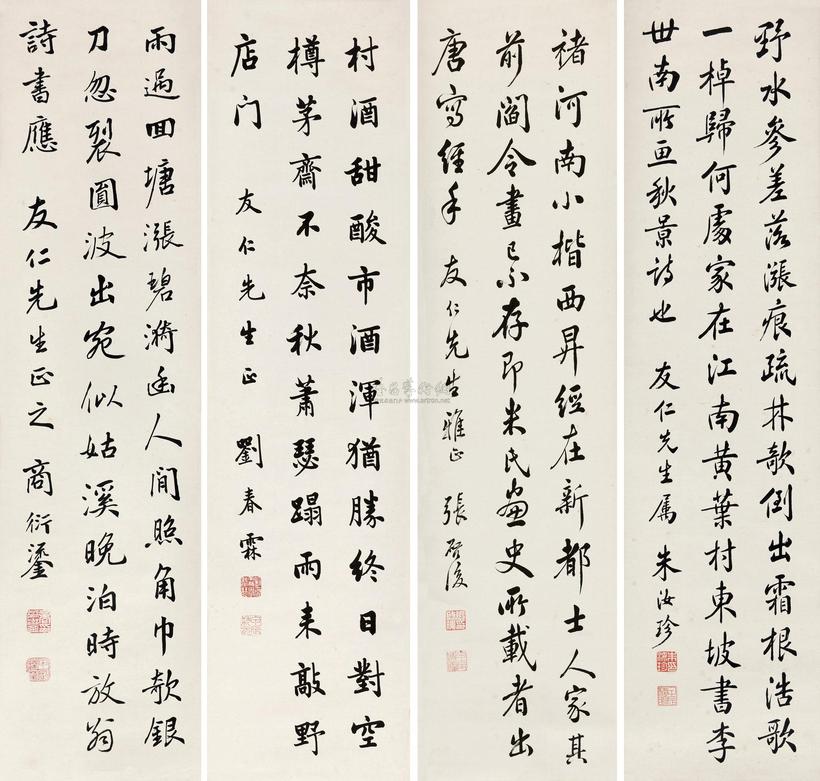 野水參差落漲痕疏林欹倒出霜根浩歌
一棹歸何處家在江南黃葉村東坡書李
世南所画秋景詩也
友仁先生属
朱汝珍
褚河南小楷西昇經在新都士人家其
前閻令畫已不存即米氏畫史所載者出
唐寫經手
友仁先生雅正
張啓後
村酒甜酸市酒渾猶勝終日對空
樽茅齋不奈秋蕭瑟蹋雨来敲野
店门
友仁先生正
劉春霖
雨過回塘漲碧漪幽人閒照角巾欹銀
刀忽裂圓波出宛似姑溪晚泊時放翁
詩書應
友仁先生正之
商衍鎏